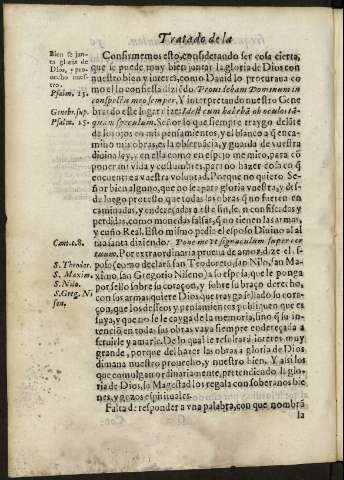 Tratado de la
Bien se jun-
ta gloria de
Dios, y pro-
uecho nues-
tro.
Psalm. 15.
Genebr. sup.
Psalm. 15.
Cant. c. 8.
S. Theodor.
S. Maxim.
S. Nilo.
S. Greg. Ni
sen.
Confirmemos esto, considerando ser cosa cierta,
que se puede muy bien juntar la gloria de Dios con
nuestro bien y interes, como Dauid lo procuraua co
mo ello confiessa diziẽdo. Prouidebam Dominum in
conspectu meo semper. Y interpretando nuestro Gene
brardo este lugar dize: Idest eum habebã ob oculos tã-
quam speculum. Señor lo que siempre traygo delãte
de los ojos en mis pensamientos, y el blanco a q̃ enca
mino mis obras, es la obseruancia, y guarda de vuestra
diuina ley, y en ella como en espejo me miro, para cõ
poner mi vida y costumbres, para no hazer cosa en q̃
encuentre a vuestra voluntad. Porque no quiero Se-
ñor bien alguno, que no sea para gloria vuestra, y des-
de luego protesto que todas las obras q̃ no fueren en
caminadas, y endereçadas a este fin, seãn confiscadas y
perdidas, como monedas falsas, q̃ no tienen las armas,
y cuño Real. Esto mismo pedia el esposo Diuino al al
ma santa diziendo: Pone me vt signaculum super cor
tuum. Por extraordinaria prueua de amor, dize el es-
poso (como declarã san Teodoreto, san Nilo, san Ma-
ximo, san Gregorio Niseno) a su esposa, que le ponga
por sello sobre su coraçon, y sobre su braço derecho,
con sus armas: quiere Dios que trayga sellado su cora-
çon, que los desseos y pensamientos publiquen que es
suya, y que no se le cayga de la memoria, sino q̃ su in-
tenciõ en todas sus obras vaya siempre endereçada a
seruirle y amarle. De lo qual le resultarà interes muy
grande, porque del hazer las obras a gloria de Dios
dimana nuestro prouecho, y nuestro bien. Y assi los
que comulgan ordinariamente, pretendiendo la glo-
ria de Dios, su Magestad los regala con soberanos bie
nes, y gozos espirituales.
Falta de responder a vna palabra, con que nombrã
la